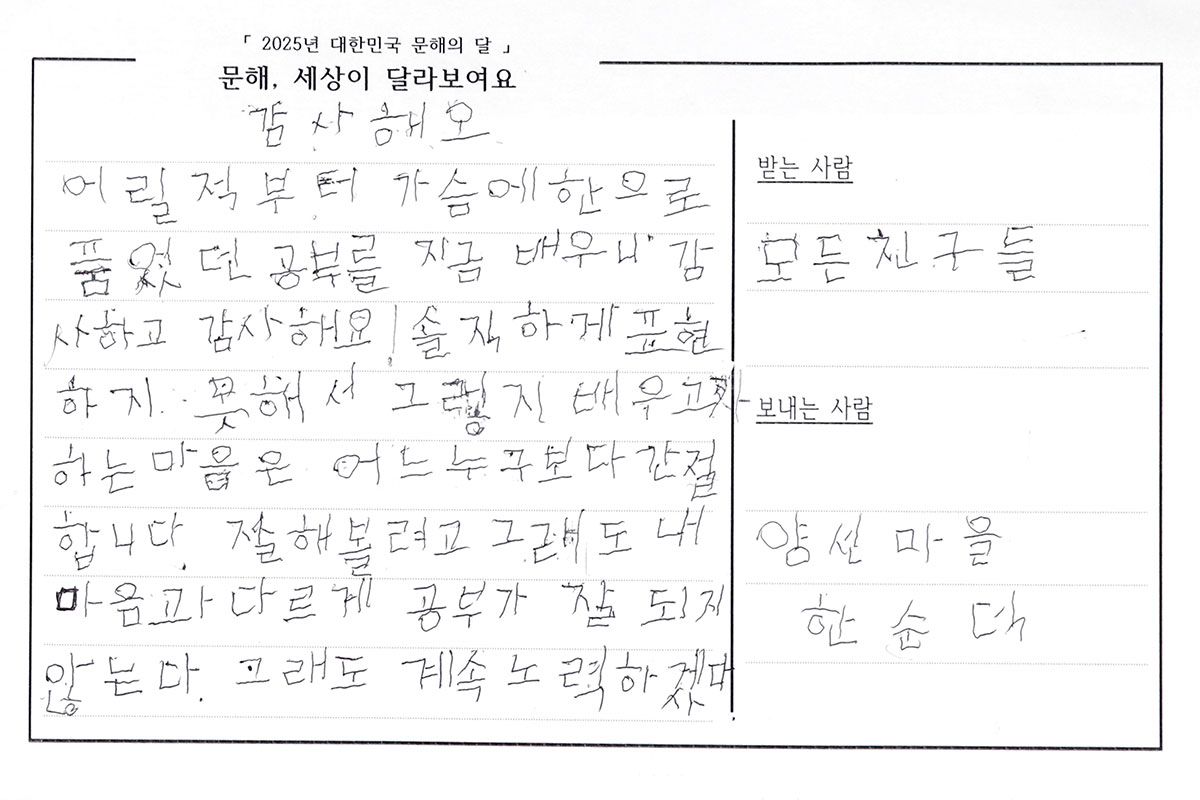 「 2025년 대한민국 문해의 달 」
문해, 세상이 달라보여요
감사해오
어릴적부터 가슴에한으로
품었던공부를 지금 배우니 감
사하고 감사해요! 솔직하게표현
하지 못해서 그렇지 배우고자
하는마음은 어느누구보다간절
합니다. 잘해볼려고 그래도 내
마음과다르게 공부가 잘 되지
않는다. 그래도 계속노력하겠다
받는 사람
모든친구들
보내는 사람
양선마을
한순덕